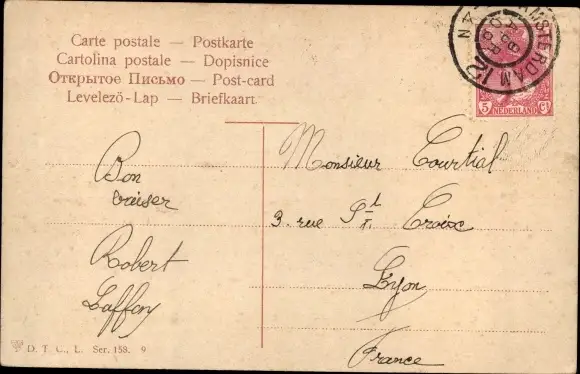 Carte postale — Postkarte
Cartolina postale — Dopisnice
Открытое Письмо — Post-card
Levelező-Lap — Briefkaart
AMSTERDAM 12
5 NEDERLAND Ct
Bon
baiser
Robert
Laffon
Monsieur Courtial
3. rue St Croix
Lyon
France
D. T. C., L. Ser. 158. 9